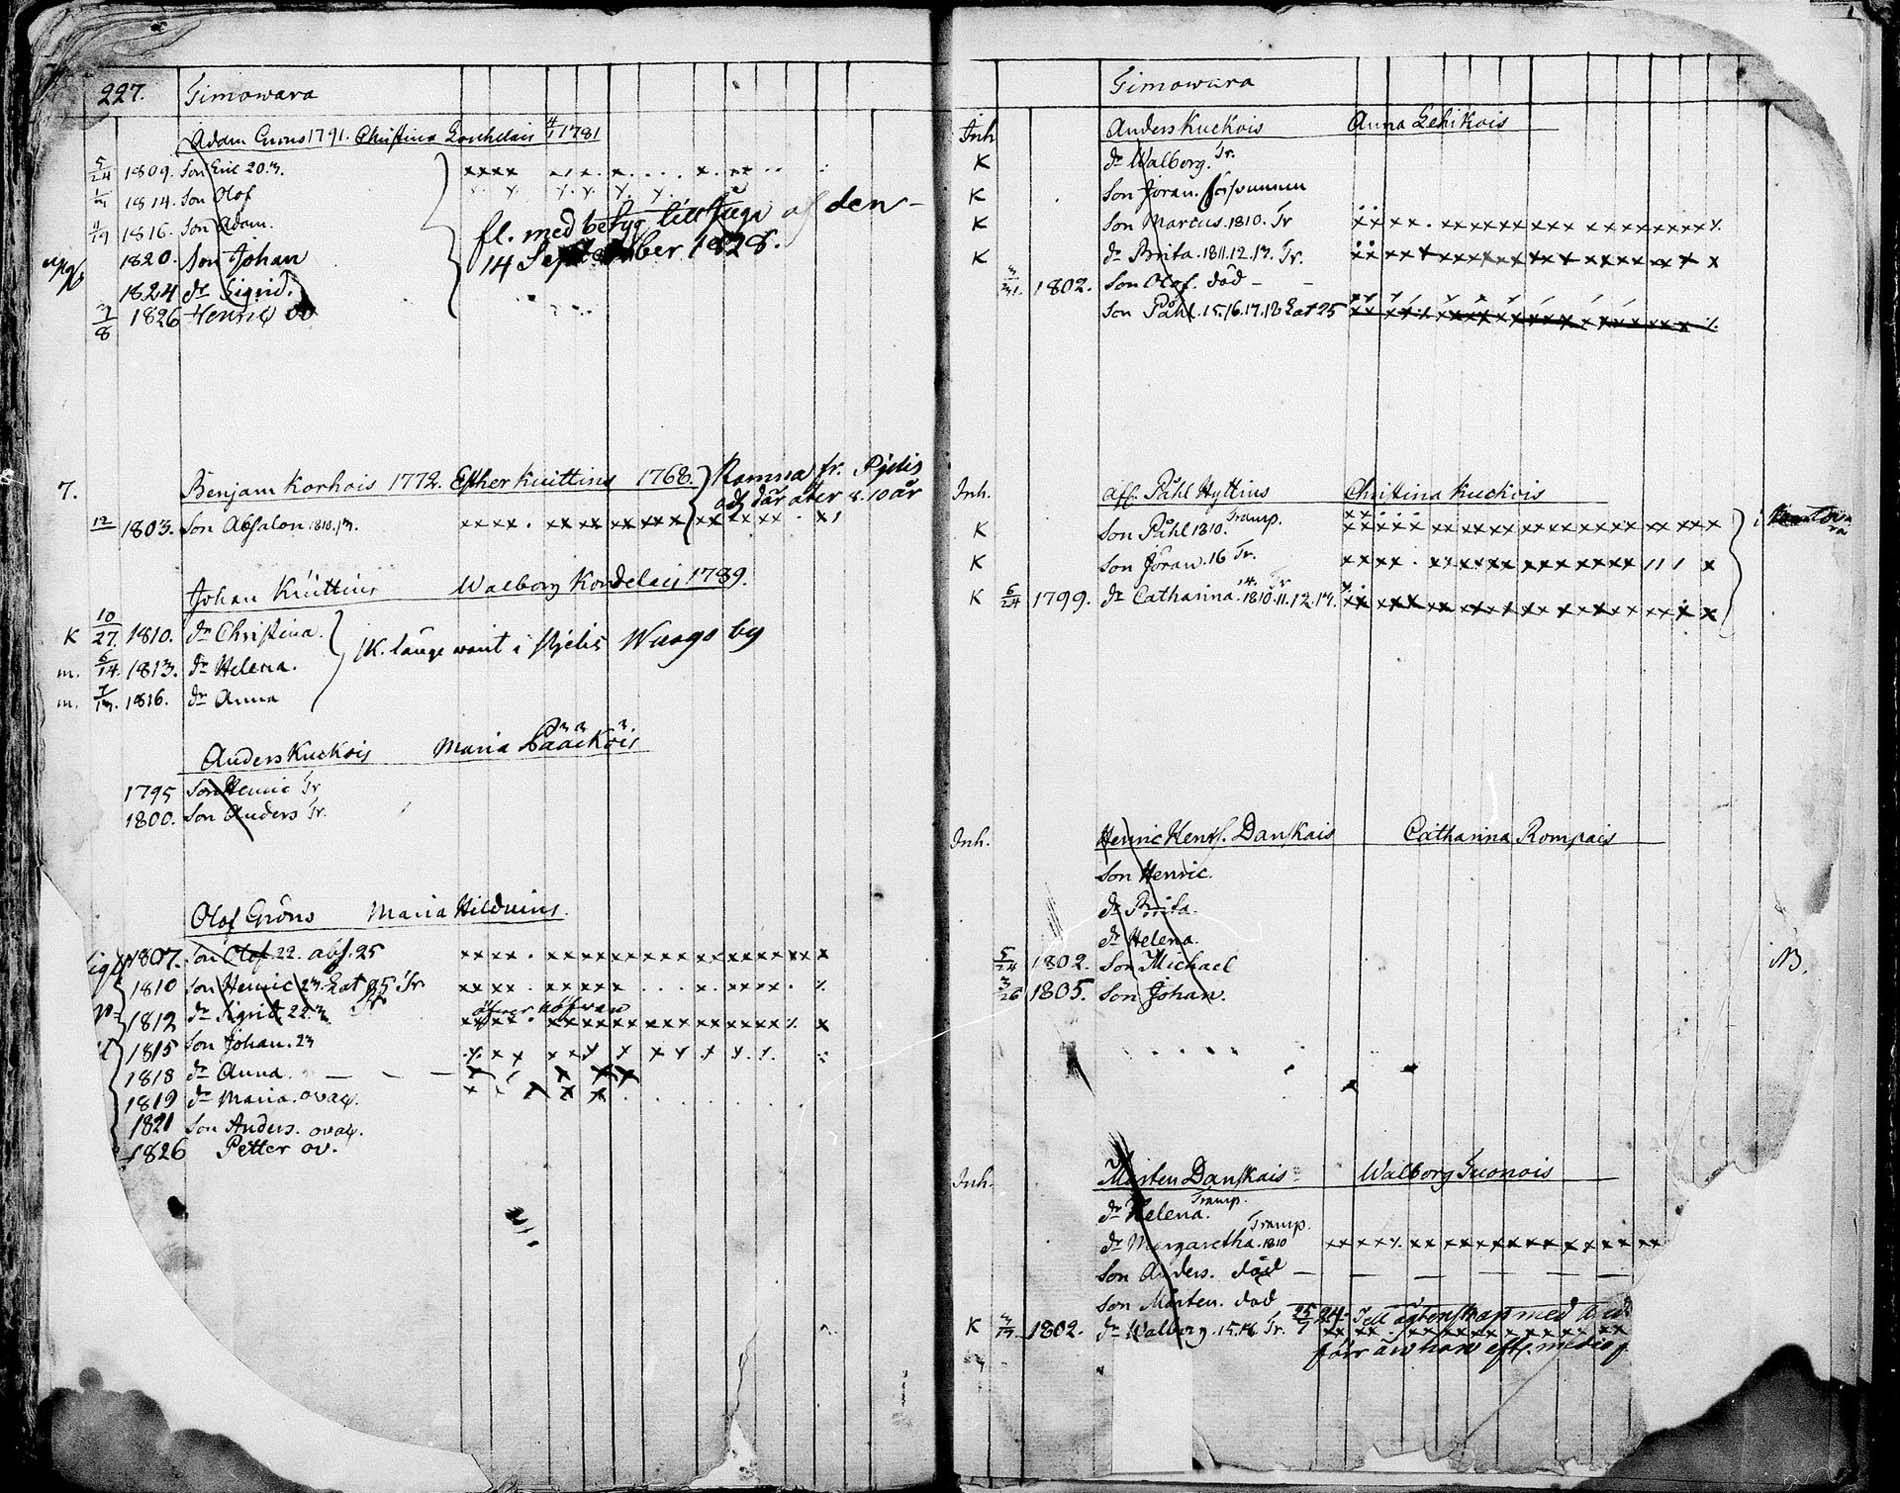 227. Timowara
Adam Gröns 1791. Christina Louhelais 1781
5/24 1809. Son Eric 20.3.
1814. Son Olof
1816. Son Adam.
1820. Son Johan
1824 dr Sigrid.
3/8 1826 Henric ov
fl. med betyg af den
14 September 1828.
7. Benjam Korhois 1772. Esther Knittius 1768.
Komna fr. Pjelis
och där åter 8.10 år
12 1803. Son Absalon 1810.13.
Johan Knittius Walborg Kondelais 1789.
K 10/27. 1810. dr Christina.
m. 6/14. 1813. dr Helena.
m. 1816. dr Anna
K. länge warit i Pjelis Wuogo by
Anders Kuckois Maria Pääckois
1795 Son Henric Tr
1800. Son Anders Tr.
Olof Gröns Maria Hilduins.
1807. Son Olof 22. abs. 25
1810 Son Henric 23. Lat 25 Tr
1812 dr Sigrid 22.3
öfwer höfwan
1815 Son Johan. 23
1818 dr Anna.
1819 dr Maria. ovac.
1821 Son Anders. ovac.
1826 Petter ov.
Timowara
Inh Anders Kuckois Anna Lehikois
K dr Walborg. Tr.
K Son Jöran. försvunnen
K Son Marcus. 1810. Tr
K dr Brita. 1811.12.13. Tr.
3/31. 1802. Son Olof. död
Son Påhl. 15.16.17.18 Lat 25
Inh. Aff. Påhl Hyttius Christina Kuckois
K Son Påhl 1810. Tramp.
K Son Jöran. 16 Tr.
K 6/24 1799. dr Catharina. 1810.11.12.13. 14. Tr
Inh. Henric Henrs. Danskais Catharina Rompais
Son Henric.
dr Brita.
dr Helena.
5/24 1802. Son Michael
3/26 1805. Son Johan.
NB.
Inh. Mårten Danskais Walborg Tuonois
dr Helena. Tramp.
dr Margaretha. 1810 Tramp.
Son Anders. död
Son Mårten. död
K 1802. dr Walborg. 15.16. Tr. 25/7 24. Till ägtenskap med